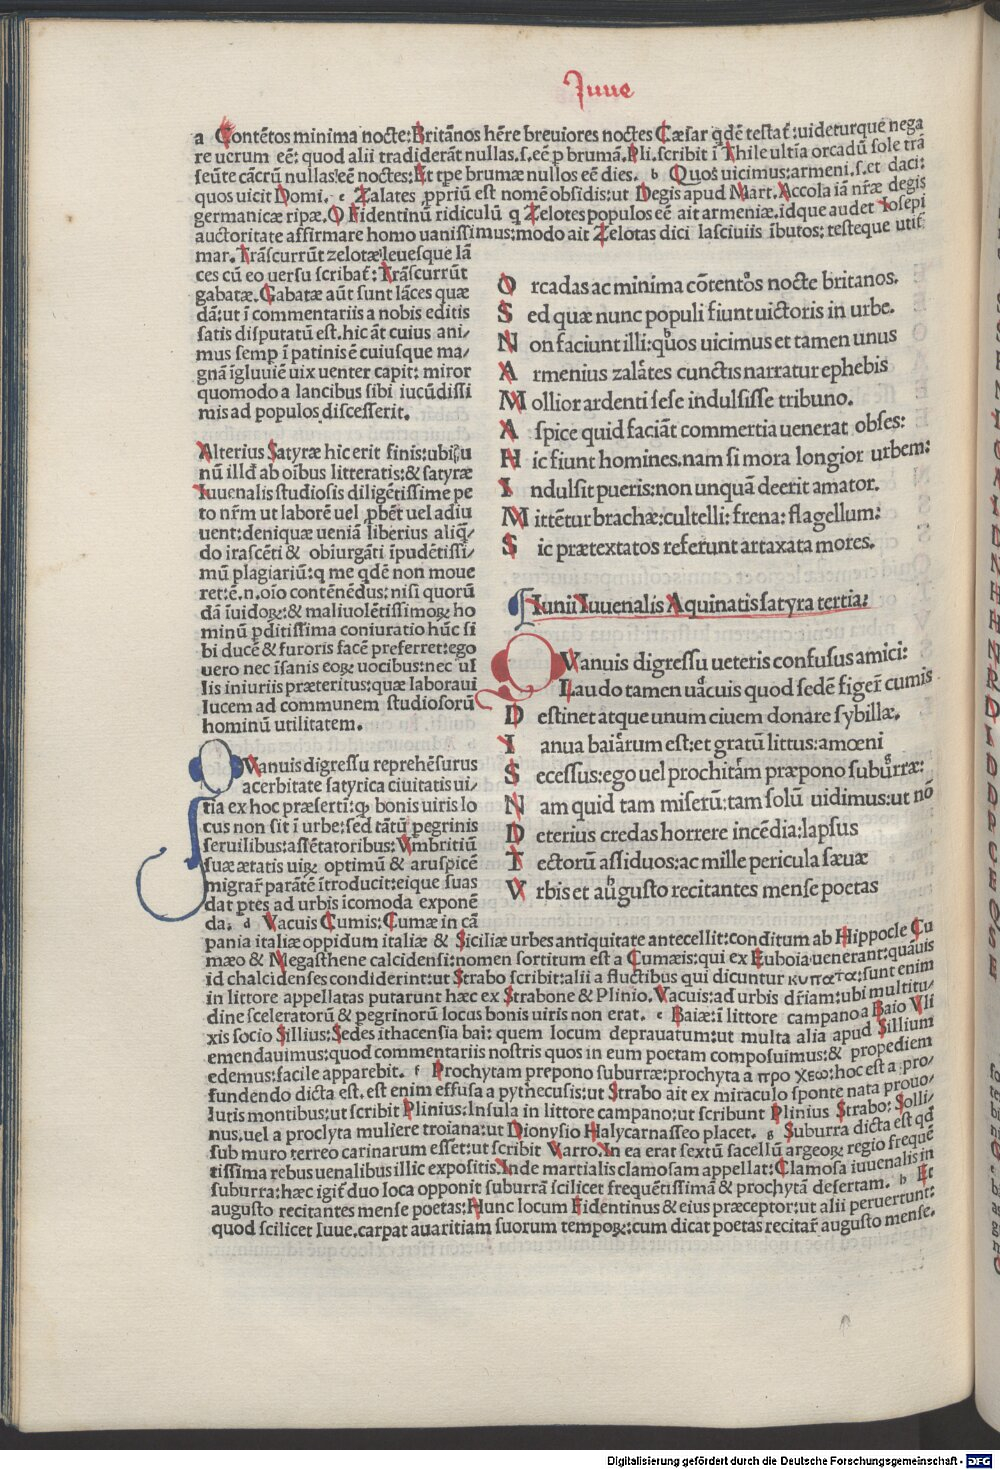 Iuue
a Contētos minima nocte: Britānos hēre breuiores noctes Cæsar qdē testat: uideturque nega
re uerum eē: quod alii tradiderāt nullas.s.eē p brumā. Pli. scribit ī Thile ultīa orcadū sole trā
seūte cācrū nullas eē noctes: Et tpe brumæ nullos eē dies. b Quos uicimus: armeni.s.et daci:
quos uicit Domi. c Zalates ppriū est nomē obsidis: ut Degis apud Mart. Accola iā nr̄æ degis
germanicæ ripæ. Q Fidentinū ridiculū q Zelotes populos eē ait armeniæ. idque audet Iosepi
auctoritate affirmare homo uanissimus: modo ait Zelotas dici lasciuiis ībutos: testeque utit
mar. Trāscurrūt zelotæ leuesque lā
ces cū eo uersu scribat: Trāscurrūt
gabatæ. Gabatæ aūt sunt lāces quæ
dā: ut ī commentariis a nobis editis
satis disputatū est. hic āt cuius ani/
mus semp ī patinis ē cuiusque ma/
gnā īgluuiē uix uenter capit: miror
quomodo a lancibus sibi iucūdissi
mis ad populos discesserit.
Alterius Satyræ hic erit finis: ubi su
nū illd ab oībus litteratis: & satyræ
Iuuenalis studiosis diligētissime pe
to nr̄m ut laborē uel pbēt uel adiu
uent: deniquæ ueniā liberius aliq/
do irascēti & obiurgāti īpudētissi/
mū plagiariū: q me qdē non moue
ret: ē.n.oīo contēnēdus: nisi quorū
dā īuidoꝝ: & maliuolētissimoꝝ ho
minū pditissima coniuratio hūc si
bi ducē & furoris facē preferret: ego
uero nec īsanis eoꝝ uocibus: nec ul
lis iniuriis præteritus: quæ laboraui
lucem ad communem studiosorū
hominū utilitatem.
O rcadas ac minima cōtentos nocte britanos.
S ed quæ nunc populi fiunt uictoris in urbe.
N on faciunt illi: quos uicimus et tamen unus
A rmenius zalates cunctis narratur ephebis
M ollior ardenti sese indulsisse tribuno.
A spice quid faciāt commertia uenerat obses:
H ic fiunt homines. nam si mora longior urbem:
I ndulsit pueris: non unquā deerit amator.
M ittētur brachæ: cultelli: frena: flagellum:
S ic prætextatos referunt artaxata mores.
Iunii Iuuenalis Aquinatis satyra tertia:
QVanuis digressu ueteris confusus amici:
Laudo tamen uacuis quod sedē figer̄ cumis
D estinet atque unum ciuem donare sybillæ.
I anua baiarum est: et gratū littus: amœni
S ecessus: ego uel prochitam præpono suburræ:
N am quid tam miserū: tam solū uidimus: ut nō
D eterius credas horrere incēdia: lapsus
T ectorū assiduos: ac mille pericula sæuæ
V rbis et augusto recitantes mense poetas
QVanuis digressu reprehēsurus
acerbitate satyrica ciuitatis ui/
tia ex hoc præsertī: q bonis uiris lo
cus non sit ī urbe: sed tātū pegrinis
seruilibus: assētatoribus: Vmbritiū
suæ ætatis uiꝝ optimū & aruspicē
migrar̄ parātē ītroducit: eique suas
dat ptes ad urbis īcomoda exponē
da: d Vacuis Cumis: Cumæ in cā
pania italiæ oppidum italiæ & Siciliæ urbes antiquitate antecellit: conditum ab Hippocle Cu
mæo & Megasthene calcidensi: nomen sortitum est a Cumæis: qui ex Euboia uenerant: quāuis
id chalcidenses condiderint: ut Strabo scribit: alii a fluctibus qui dicuntur κυπατα: sunt enim
in littore appellatas putarunt hæc ex Strabone & Plinio. Vacuis: ad urbis dr̄iam: ubi multitu/
dine sceleratorū & pegrinorū locus bonis uiris non erat. e Baiæ: ī littore campano a Baio Vli
xis socio Sillius: Sedes ithacensia bai: quem locum deprauatum: ut multa alia apud Sillium
emendauimus: quod commentariis nostris quos in eum poetam composuimus: & propediem
edemus: facile apparebit. f Prochytam prepono suburræ: prochyta a προ χεω: hoc est a pro/
fundendo dicta est. est enim effusa a pythecusis: ut Strabo ait ex miraculo sponte nata prouo/
lutis montibus: ut scribit Plinius: Insula in littore campano: ut scribunt Plinius Strabo: Solli/
nus. uel a proclyta muliere troiana: ut Dionysio Halycarnasseo placet. g Suburra dicta est qd
sub muro terreo carinarum esset: ut scribit Varro. In ea erat sextū sacellū argeoꝝ regio frequē
tissima rebus uenalibus illic expositis. Inde martialis clamosam appellat: Clamosa iuuenalis in
suburra: hæc igit̄ duo loca opponit suburrā scilicet frequētissimā & prochytā desertam. h Et
augusto recitantes mense poetas: Hunc locum Fidentinus & eius præceptor: ut alii peruertunt:
quod scilicet Iuue. carpat auaritiam suorum tempoꝝ: cum dicat poetas recitar̄ augusto mense.
Digitalisierung gefördert durch die Deutsche Forschungsgemeinschaft - DFG